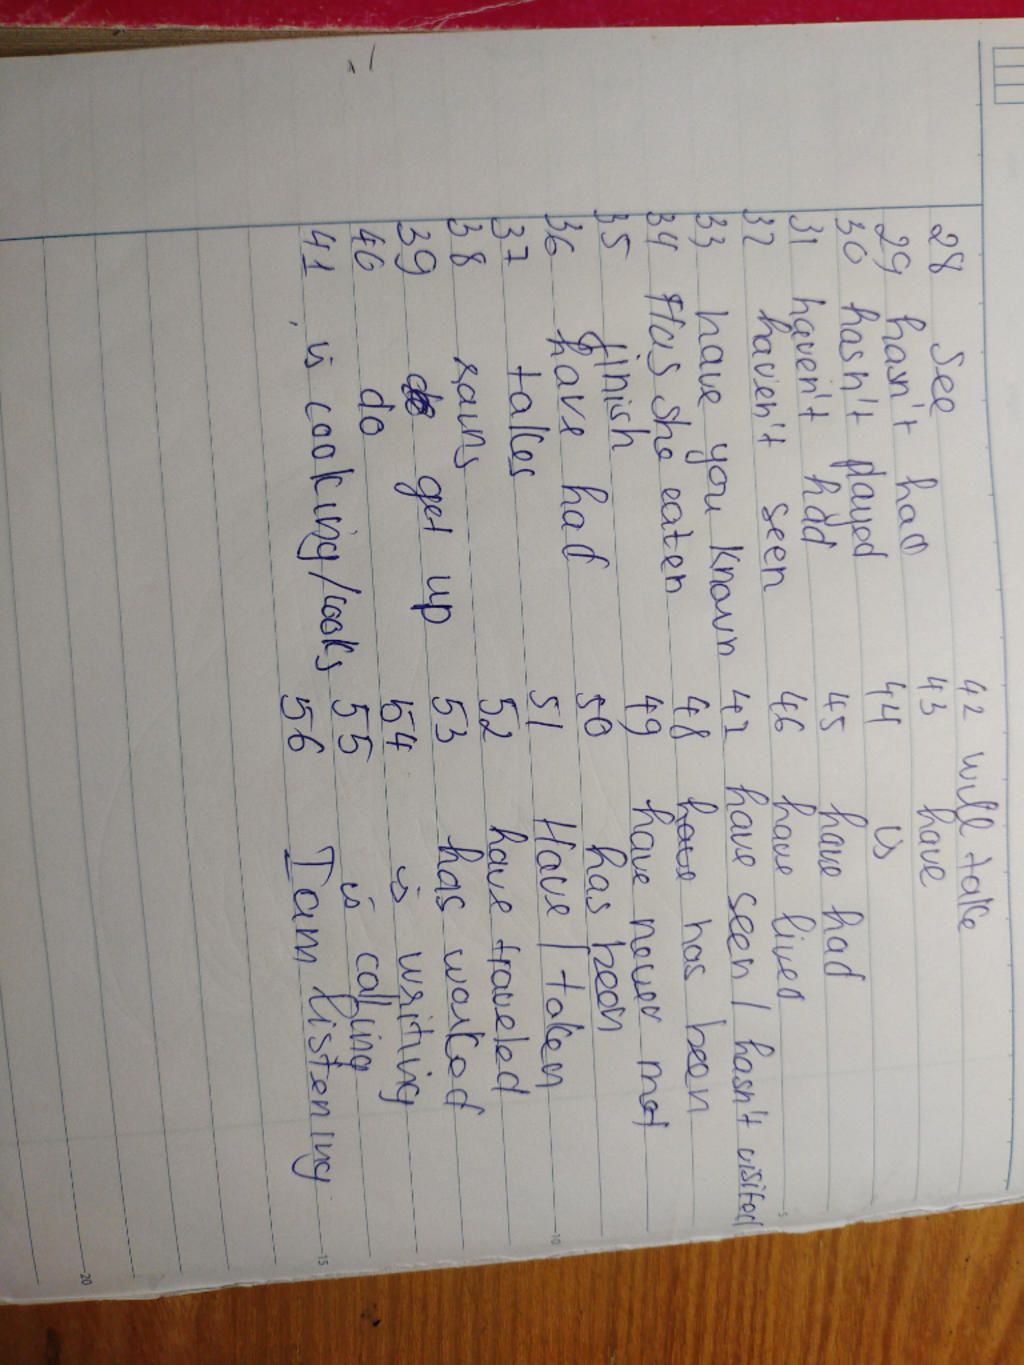 28 See
29 hasn't had
30 hasn't played
31 haven't had
32 haven't seen
33 have you known
34 Has she eaten
35 finish
36 have had
37 takes
38 rains
39 get up
40 do
41 is cooking/cooks
42 will take
43 have
44 is
45 have had
46 have lived
47 have seen / hasn't visited
48 has been
49 have never met
50 has been
51 Have / taken
52 have traveled
53 has worked
54 is writing
55 is calling
56 I am listening
5
10
15
20